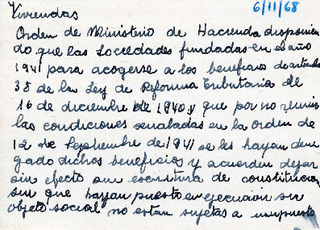 Viviendas 6/11/68
Orden de Ministerio de Hacienda disponien
do que las Sociedades fundadas en el año
1941 para acogerse a los beneficios de
38 de la Ley de Reforma Tributaria de
16 de diciembre de 1940, y que por no reunir
las condiciones señaladas en la orden de
12 de Septiembre de 1941 se les hayan dene
gado dichos beneficios y acuerden dejar
sin efecto su escritura de constitucion
sin que hayan puesto en ejecucion su
objeto social no estan sujetas a impuesto